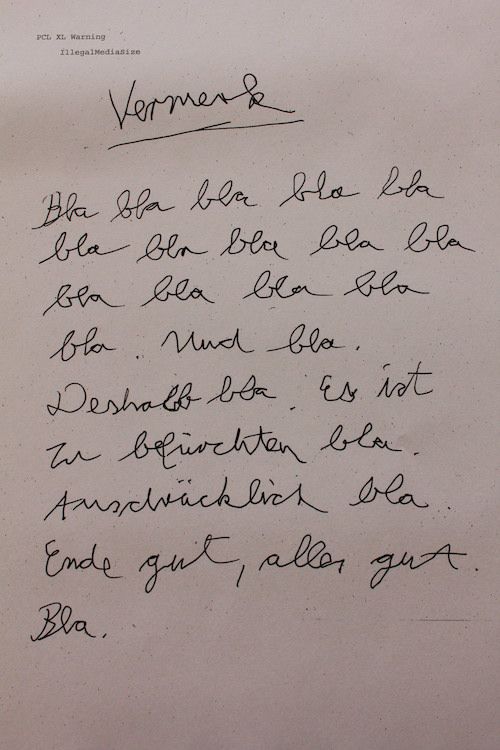 PCL XL Warning
IllegalMediaSize
Vermerk
Bla bla bla bla bla
bla bla bla bla bla
bla bla bla bla
bla. Und bla.
Deshalb bla. Es ist
zu befürchten bla.
Ausdrücklich bla.
Ende gut, alles gut.
Bla.